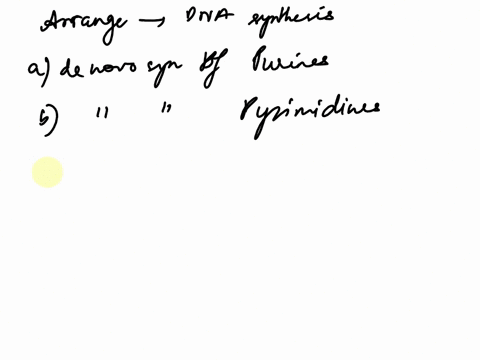 Arrange → DNA synthesis
a) de novo syn of Purines
b) " " Pyrimidines